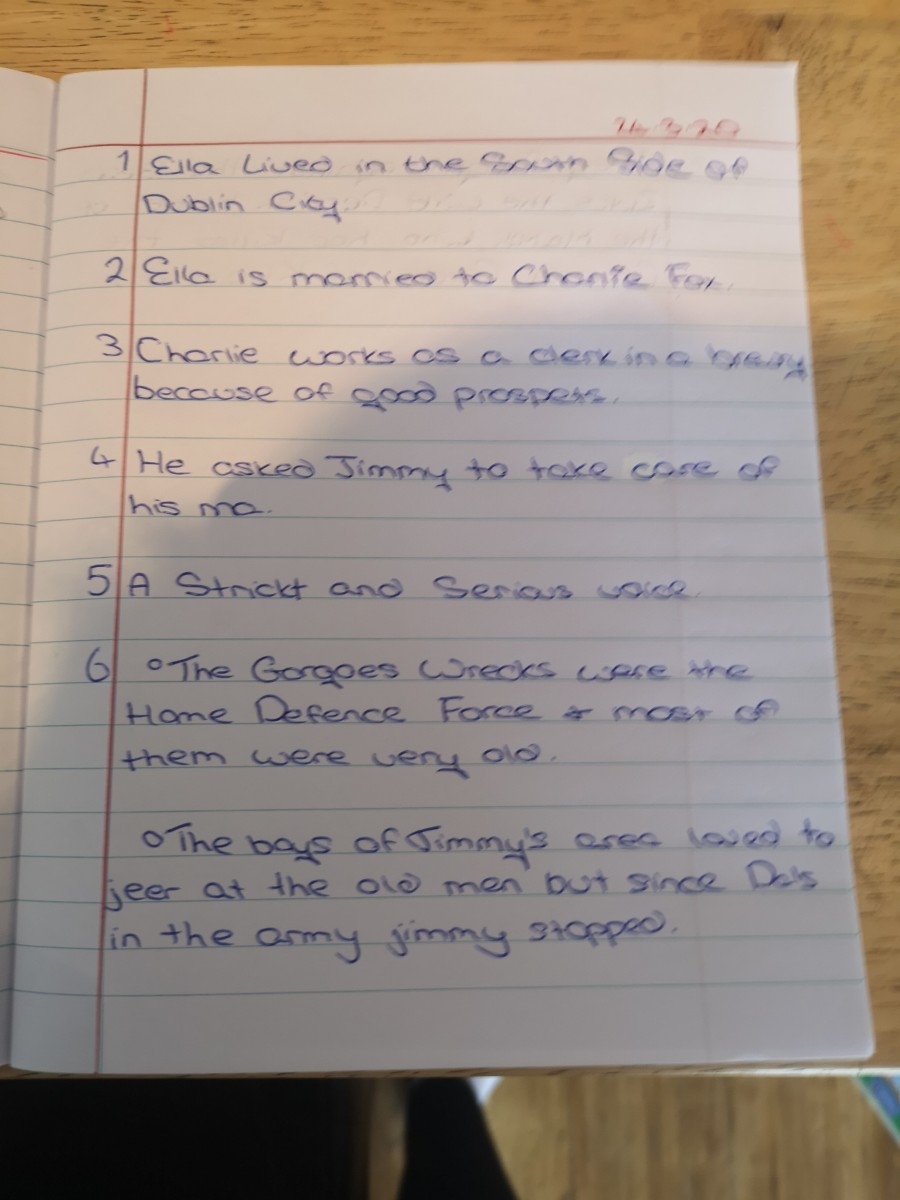 24.3.20
1 Ella Lived in the South Side of
Dublin City.
2 Ella is married to Charlie Fox.
3 Charlie works as a clerk in a
because of good prospets.
4 He asked Jimmy to take care of
his ma.
5 A Strickt and Serious voice.
6 o The Gorgoes Wrecks were the
Home Defence Force & most of
them were very old.
o The boys of Jimmy's area loved to
jeer at the old men but since Da's
in the army jimmy stopped.